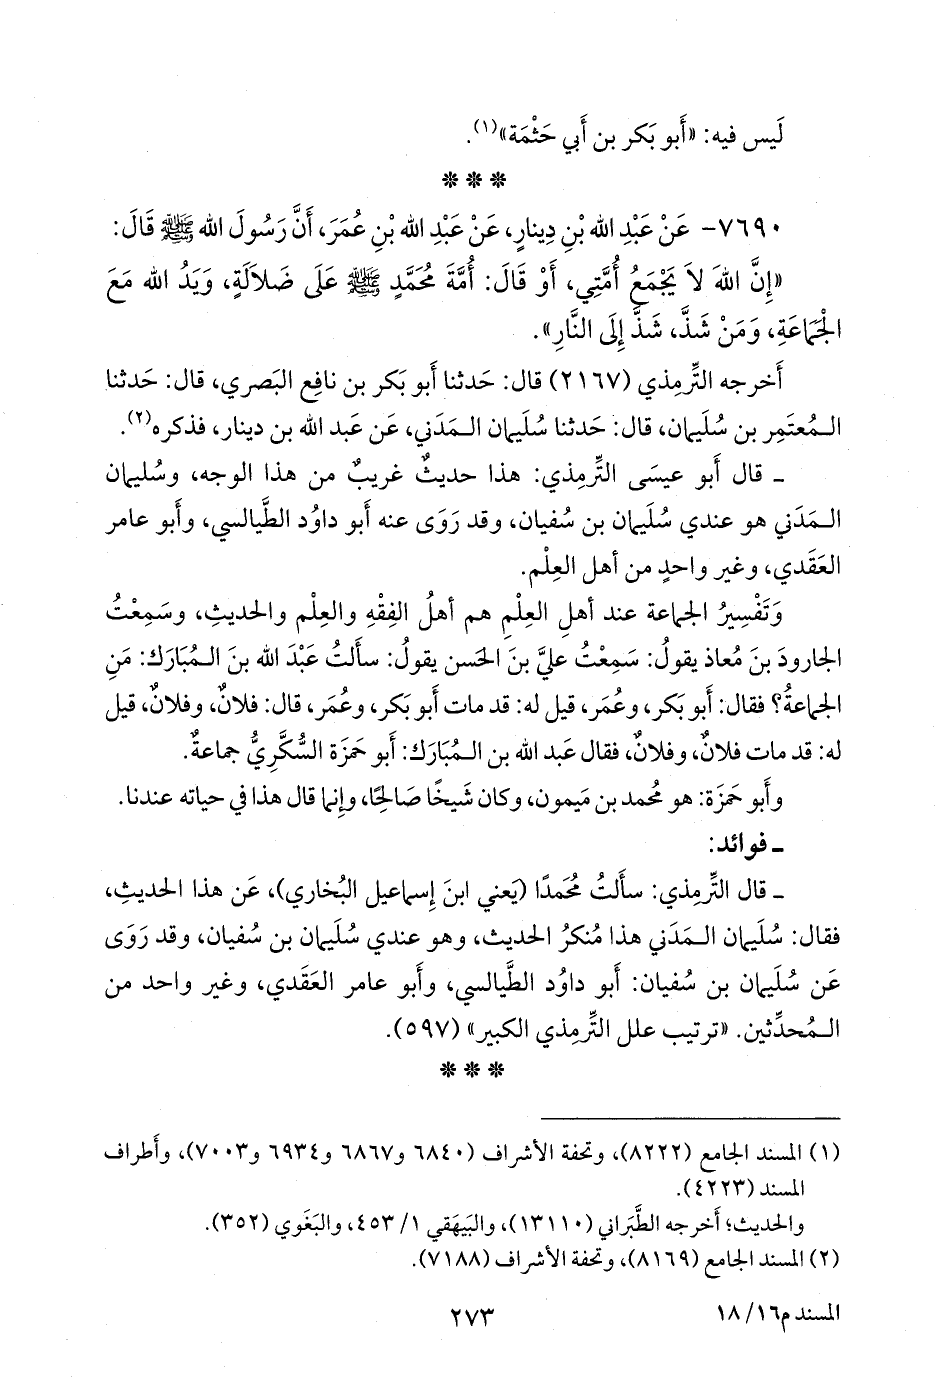 لَيس فيه: «أَبو بَكر بن أَبي حَثْمَة»(١).
* * *
٧٦٩٠- عَنْ عَبْدِ الله بْنِ دِينارٍ، عَنْ عَبْدِ الله بْنِ عُمَرَ، أَنَّ رَسُولَ الله ﷺ قَالَ:
«إِنَّ اللهَ لاَ يَجْمَعُ أُمَّتِي، أَوْ قَالَ: أُمَّةَ مُحَمَّدٍ ﷺ عَلَى ضَلاَلَةٍ، وَيَدُ الله مَعَ
الْجَمَاعَةِ، وَمَنْ شَذَّ، شَذَّ إِلَى النَّارِ».
أَخرجه التِّرمِذي (٢١٦٧) قال: حَدثنا أَبو بَكر بن نافِع البَصري، قال: حَدثنا
الـمُعتَمِر بن سُليمان، قال: حَدثنا سُليمان الـمَدَني، عَن عَبد الله بن دينار، فذكره(٢).
ـ قال أَبو عيسَى التِّرمِذي: هذا حديثٌ غريبٌ من هذا الوجه، وسُليمان
الـمَدَني هو عندي سُليمان بن سُفيان، وقد رَوَى عنه أَبو داوُد الطَّيالسي، وأَبو عامر
العَقَدي، وغير واحدٍ من أَهل العِلْم.
وَتَفْسِيرُ الجماعة عند أَهلِ العِلْمِ هم أَهلُ الفِقْهِ والعِلْم والحديثِ، وسَمِعْتُ
الجارودَ بنَ مُعاذ يقولُ: سَمِعْتُ عليَّ بنَ الحَسن يقولُ: سأَلتُ عَبْدَ الله بنَ الـمُبَارَك: مَنِ
الجماعةُ؟ فقال: أَبو بَكر، وعُمَر، قيل له: قد مات أَبو بَكر، وعُمَر، قال: فلانٌ، وفلانٌ، قيل
له: قد مات فلانٌ، وفلانٌ، فقال عَبد الله بن الـمُبَارَك: أَبو حَمزَة السُّكَّريُّ جماعةٌ.
وأَبو حَمزَة: هو مُحمد بن مَيمون، وكان شَيخًا صَالحًا، وإِنما قال هذا في حياته عندنا.
ـ فوائد:
ـ قال التِّرمِذي: سأَلتُ مُحَمدًا (يَعني ابنَ إِسماعيل البُخاري)، عَن هذا الحديثِ،
فقال: سُليمان الـمَدَني هذا مُنكرُ الحديث، وهو عندي سُليمان بن سُفيان، وقد رَوَى
عَن سُليمان بن سُفيان: أَبو داوُد الطَّيالسي، وأَبو عامر العَقَدي، وغير واحد من
الـمُحدِّثين. «ترتيب علل التِّرمِذي الكبير» (٥٩٧).
* * *
(١) المسند الجامع (٨٢٢٢)، وتحفة الأشراف (٦٨٤٠ و٦٨٦٧ و٦٩٣٤ و٧٠٠٣)، وأَطراف
المسند (٤٢٢٣).
والحديث؛ أَخرجه الطَّبَراني (١٣١١٠)، والبَيهَقي ١/ ٤٥٣، والبَغَوي (٣٥٢).
(٢) المسند الجامع (٨١٦٩)، وتحفة الأشراف (٧١٨٨).
المسند م١٦/ ١٨
٢٧٣